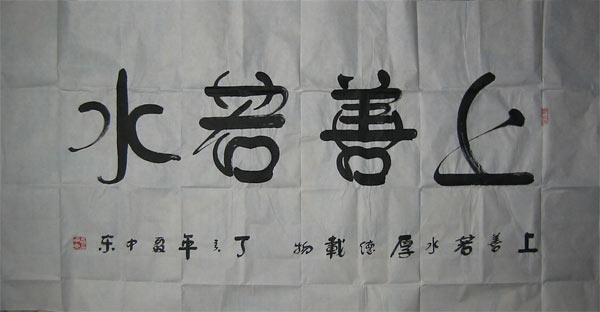 上善若水
上善若水厚德載物 丁亥年 中东